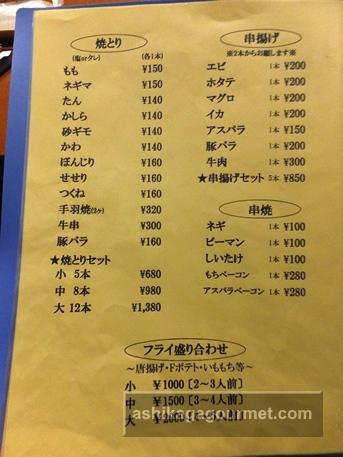 焼とり
(塩orタレ) (各1本)
もも ¥150
ネギマ ¥150
たん ¥140
かしら ¥140
砂ギモ ¥140
かわ ¥140
ぼんじり ¥160
せせり ¥160
つくね ¥160
手羽焼(2ヶ) ¥320
牛串 ¥300
豚バラ ¥160
★焼とりセット
小 5本 ¥680
中 8本 ¥980
大 12本 ¥1,380
串揚げ
※2本からお願します※
エビ 1本 ¥200
ホタテ 1本 ¥200
マグロ 1本 ¥200
イカ 1本 ¥200
アスパラ 1本 ¥150
豚バラ 1本 ¥200
牛肉 1本 ¥300
★串揚げセット 5本 ¥850
串焼
ネギ 1本 ¥100
ピーマン 1本 ¥100
しいたけ 1本 ¥100
もちベーコン 1本 ¥280
アスパラベーコン 1本 ¥280
フライ盛り合わせ
～唐揚げ・Fポテト・いももち等～
小 ¥1000〔2～3人前〕
中 ¥1500〔3～4人前〕
大
ashikagagourmet.com